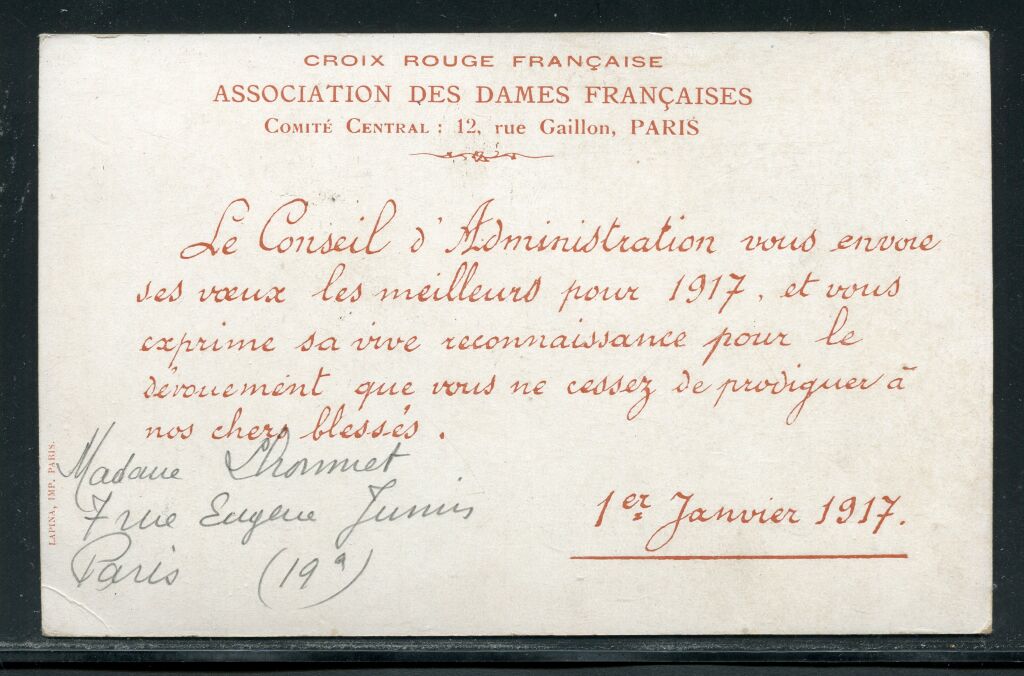 CROIX ROUGE FRANÇAISE
ASSOCIATION DES DAMES FRANÇAISES
COMITÉ CENTRAL : 12, rue Gaillon, PARIS
Le Conseil d'Administration vous envoie
ses vœux les meilleurs pour 1917, et vous
exprime sa vive reconnaissance pour le
dévouement que vous ne cessez de prodiguer à
nos chers blessés.
1er Janvier 1917.
Madame
7 rue Eugene
Paris (19e)
LAPINA, IMP. PARIS.